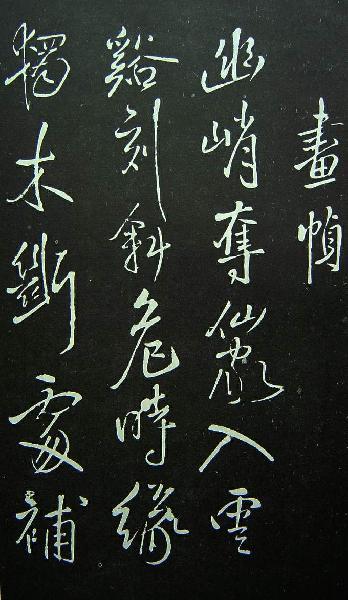 畫幀
幽峭奪仙巖入雲
谿刻斜危時緣
獨木斷處補